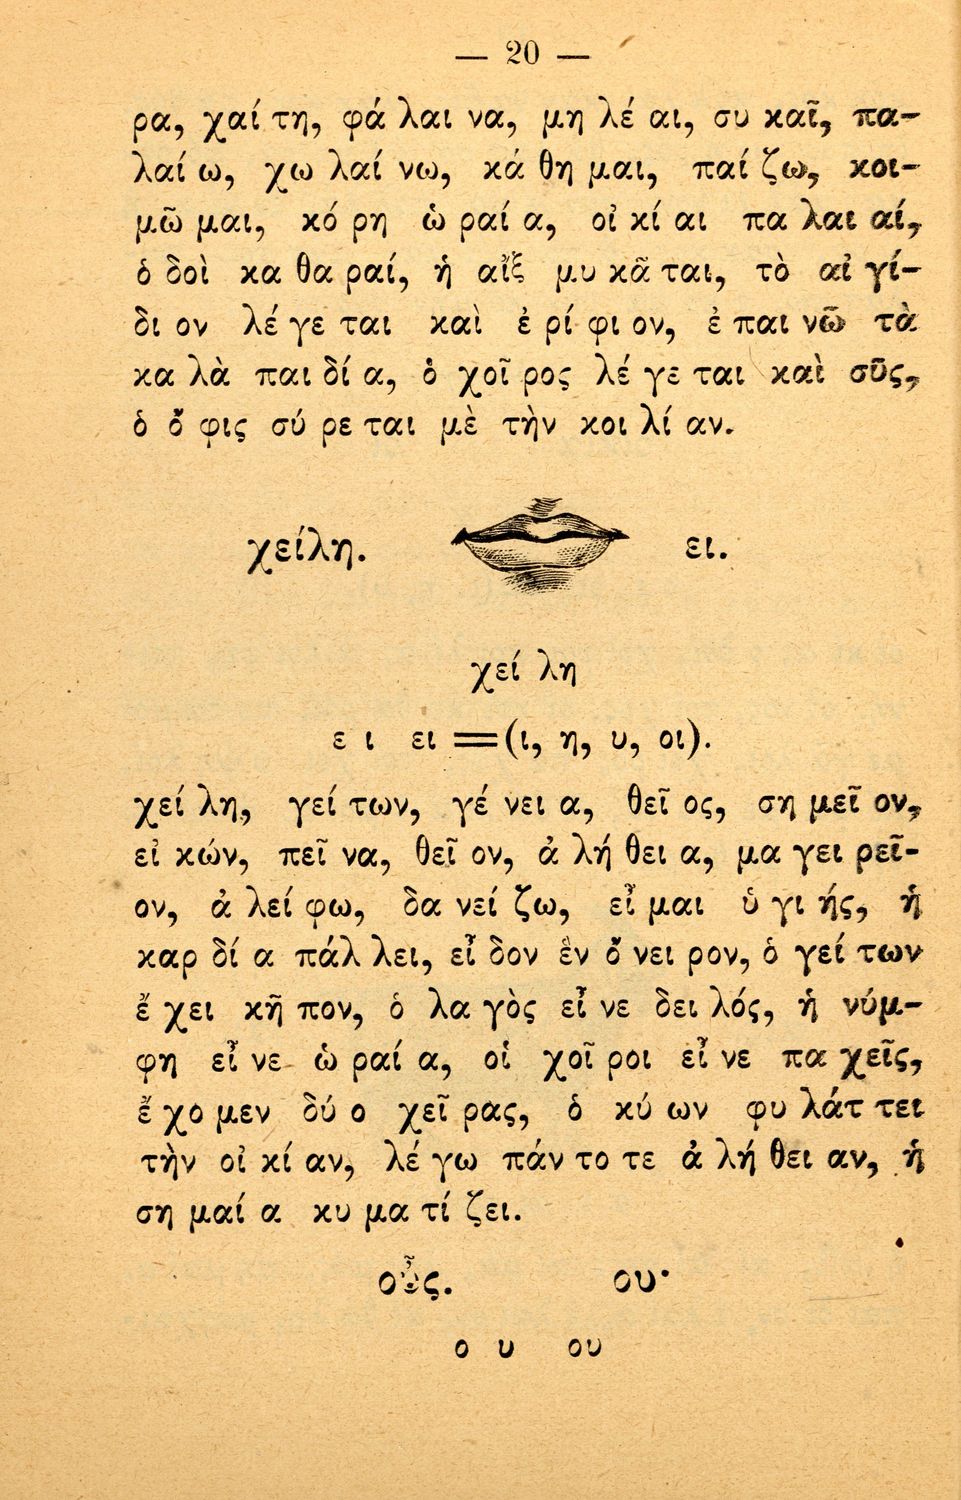 — 20 —
ρα, χαί τη, φά λαι να, μη λέ αι, συ καῖ, πα-
λαί ω, χω λαί νω, κά θη μαι, παί ζω, κοι-
μῶ μαι, κό ρη ὡ ραί α, οἰ κί αι πα λαι αί,
ὁ δοὶ κα θα ραί, ἡ αἴξ μυ κᾶ ται, τὸ αἰ γί-
δι ον λέ γε ται καὶ ἐ ρί φι ον, ἐ παι νῶ τὰ
κα λὰ παι δί α, ὁ χοῖ ρος λέ γε ται καὶ σῦς,
ὁ ὄ φις σύ ρε ται μὲ τὴν κοι λί αν.
χείλη. ει.
χεί λη
ε ι ει =(ι, η, υ, οι).
χεί λη, γεί των, γέ νει α, θεῖ ος, ση μεῖ ον,
εἰ κών, πεῖ να, θεῖ ον, ἀ λή θει α, μα γει ρεῖ-
ον, ἀ λεί φω, δα νεί ζω, εἶ μαι ὑ γι ής, ἡ
καρ δί α πάλ λει, εἶ δον ἓν ὄ νει ρον, ὁ γεί των
ἔ χει κῆ πον, ὁ λα γὸς εἶ νε δει λός, ἡ νύμ-
φη εἶ νε ὡ ραί α, οἱ χοῖ ροι εἶ νε πα χεῖς,
ἔ χο μεν δύ ο χεῖ ρας, ὁ κύ ων φυ λάτ τει
τὴν οἰ κί αν, λέ γω πάν το τε ἀ λή θει αν, ἡ
ση μαί α κυ μα τί ζει.
οὖς. ου·
ο υ ου